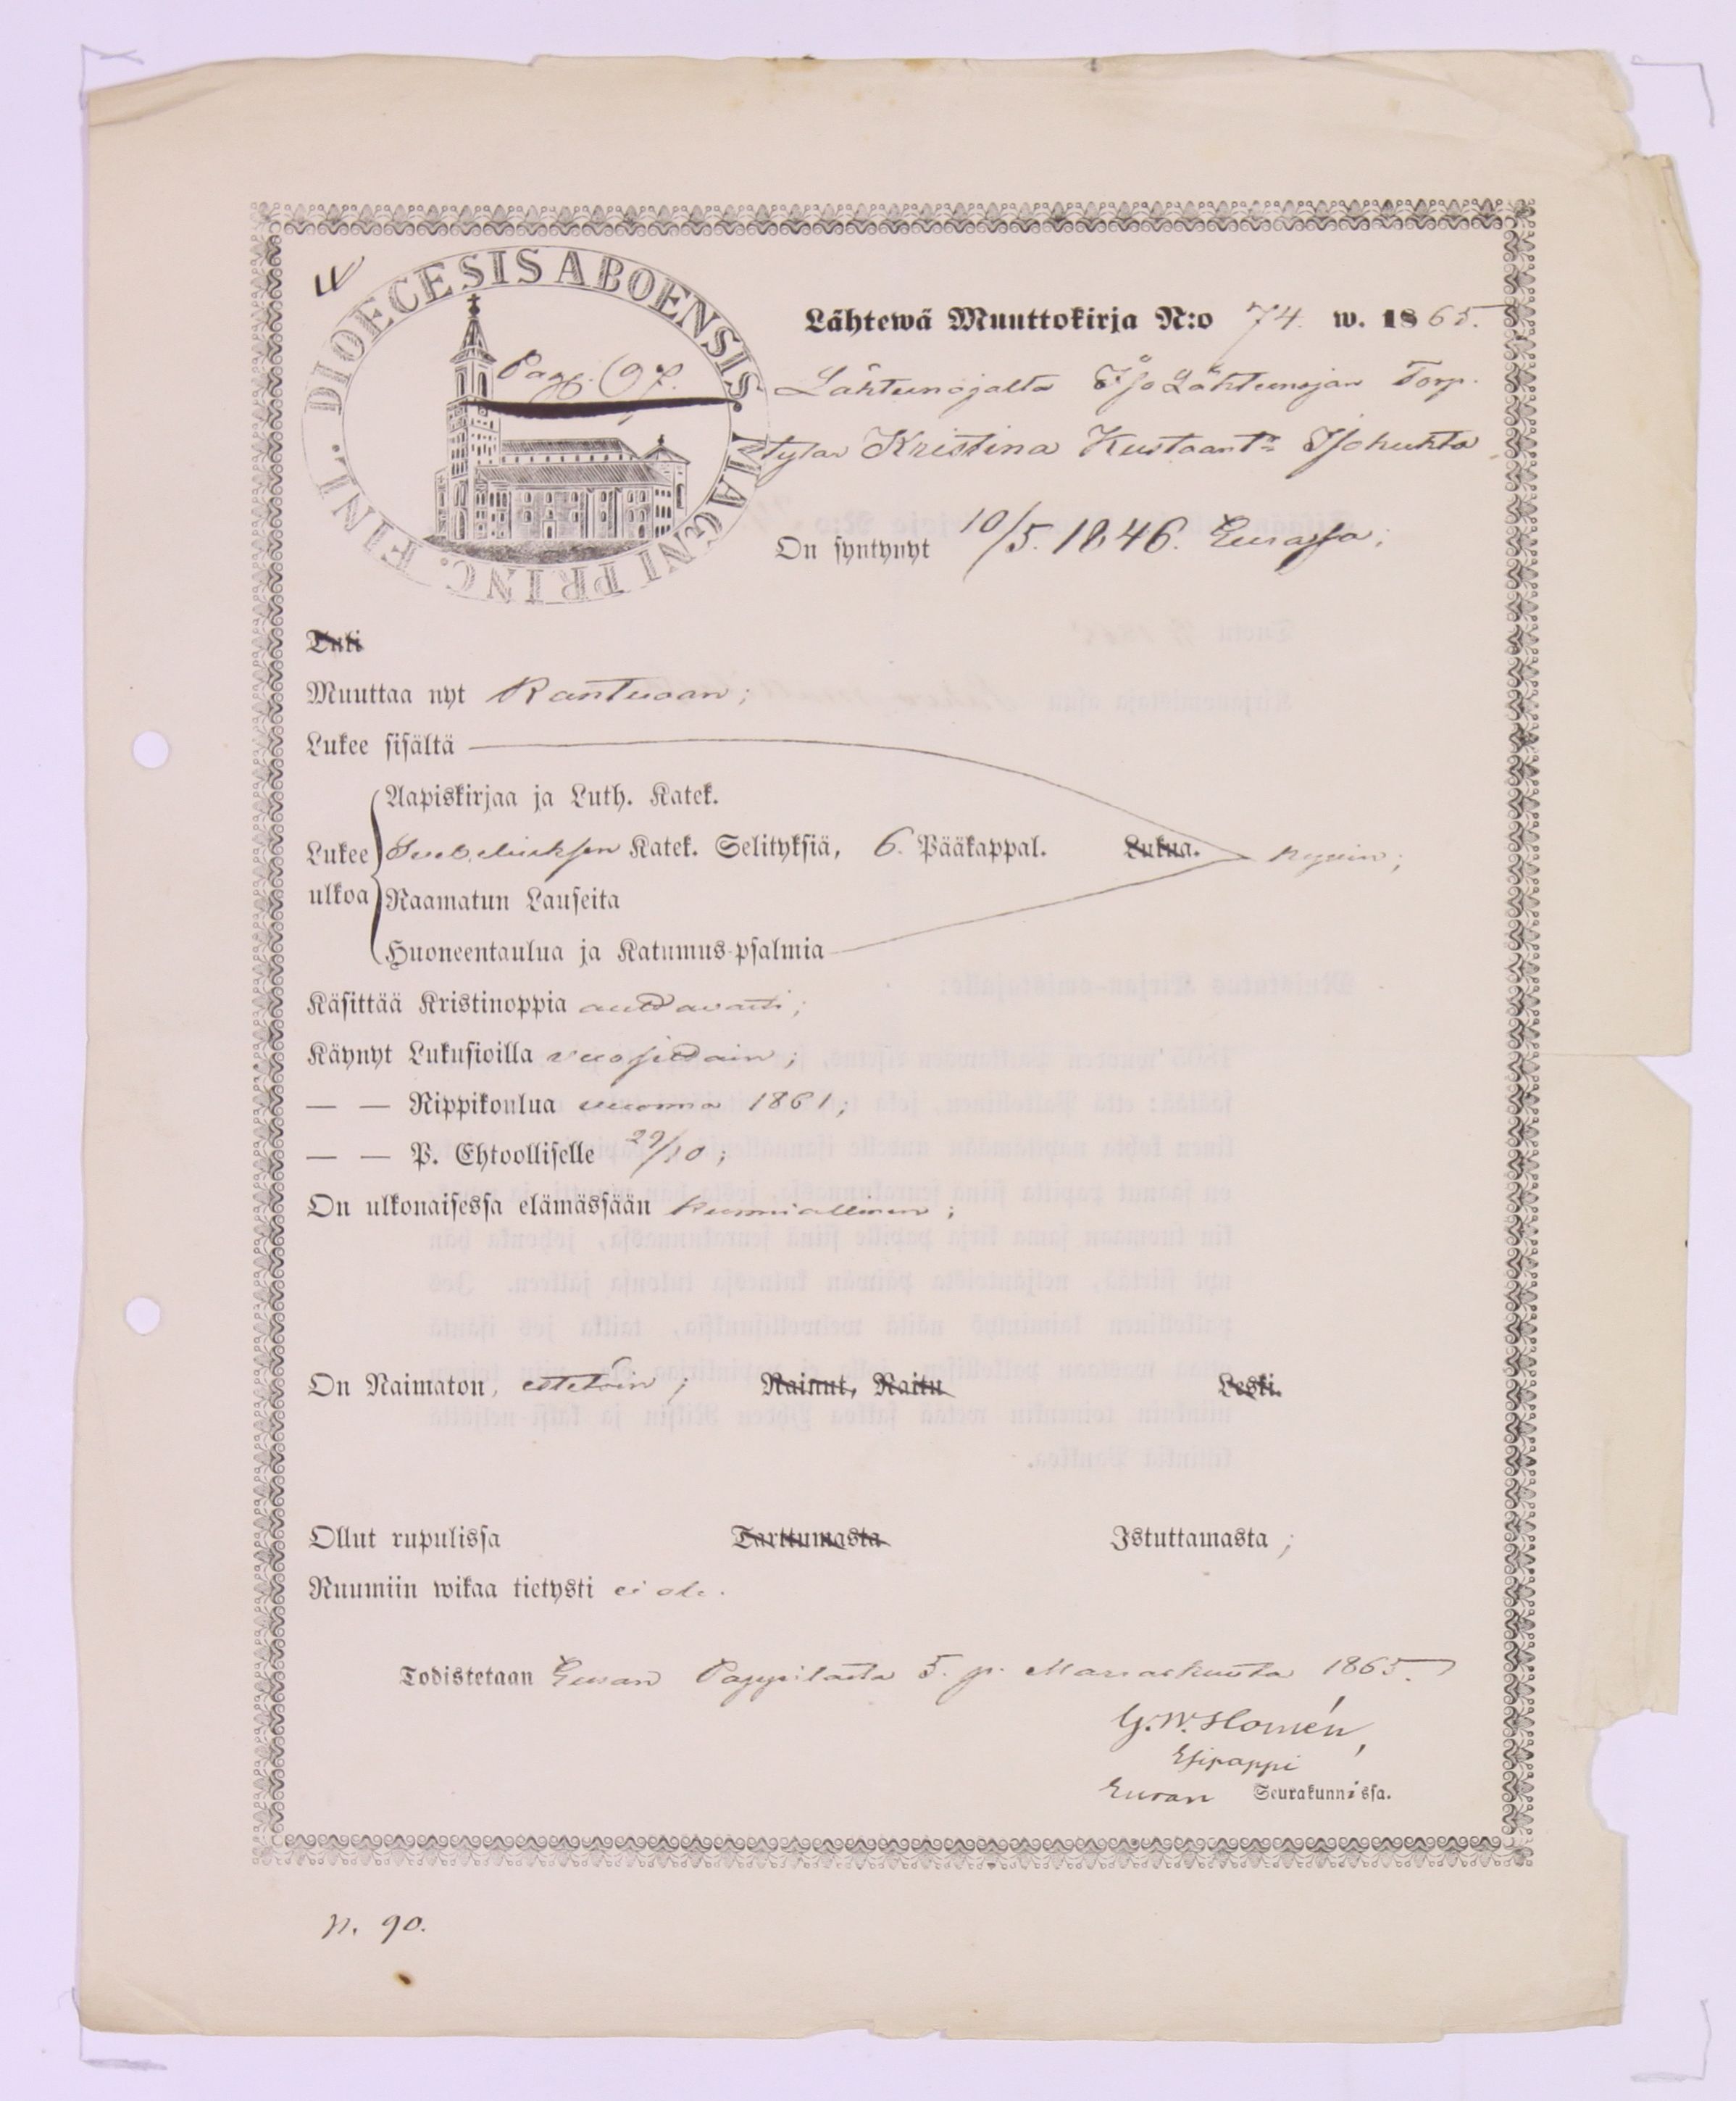 DIOECESIS ABOENSIS. MAGNI PRINC. FINL.
Pagg. 97.
Lähtewä Muuttokirja N:o 74. w. 1865.
Lähteenojalta Iso Lähteenojan Torp.
tytär Kristina Kustaant:r Isohuhta
On syntynyt 10/5. 1846. Eurassa;
Tuli
Muuttaa nyt Kantuaan;
Lukee sisältä
Aapiskirjaa ja Luth. Katek.
Lukee ulkoa Svebeliuksen Katek. Selityksiä, 6. Pääkappal. Lukua. hyvin;
Raamatun Lauseita
Huoneentaulua ja Katumus-psalmia
Käsittää Kristinoppia auttavasti;
Käynyt Lukusioilla vuosittain;
— — Rippikoulua vuonna 1861;
— — P. Ehtoolliselle 29/10;
On ulkonaisessa elämässään kunniallinen;
On Naimaton, esteetöin; Nainut, Naitu Leski.
Ollut rupulissa Tarttumasta Istuttamasta;
Ruumiin wikaa tietysti ei ole.
Todistetaan Euran Pappilasta 5. p. Marraskuuta 1865.
G. W. Homén,
Esipappi
Euran Seurakunnissa.
n. 90.